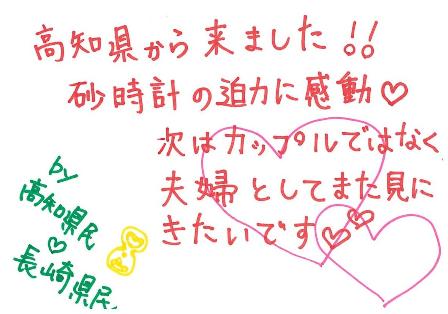 高知県から来ました!!
砂時計の迫力に感動♡
次はカップルではなく、
夫婦としてまた見に
きたいです♡♡
by
高知県民
♡
長崎県民